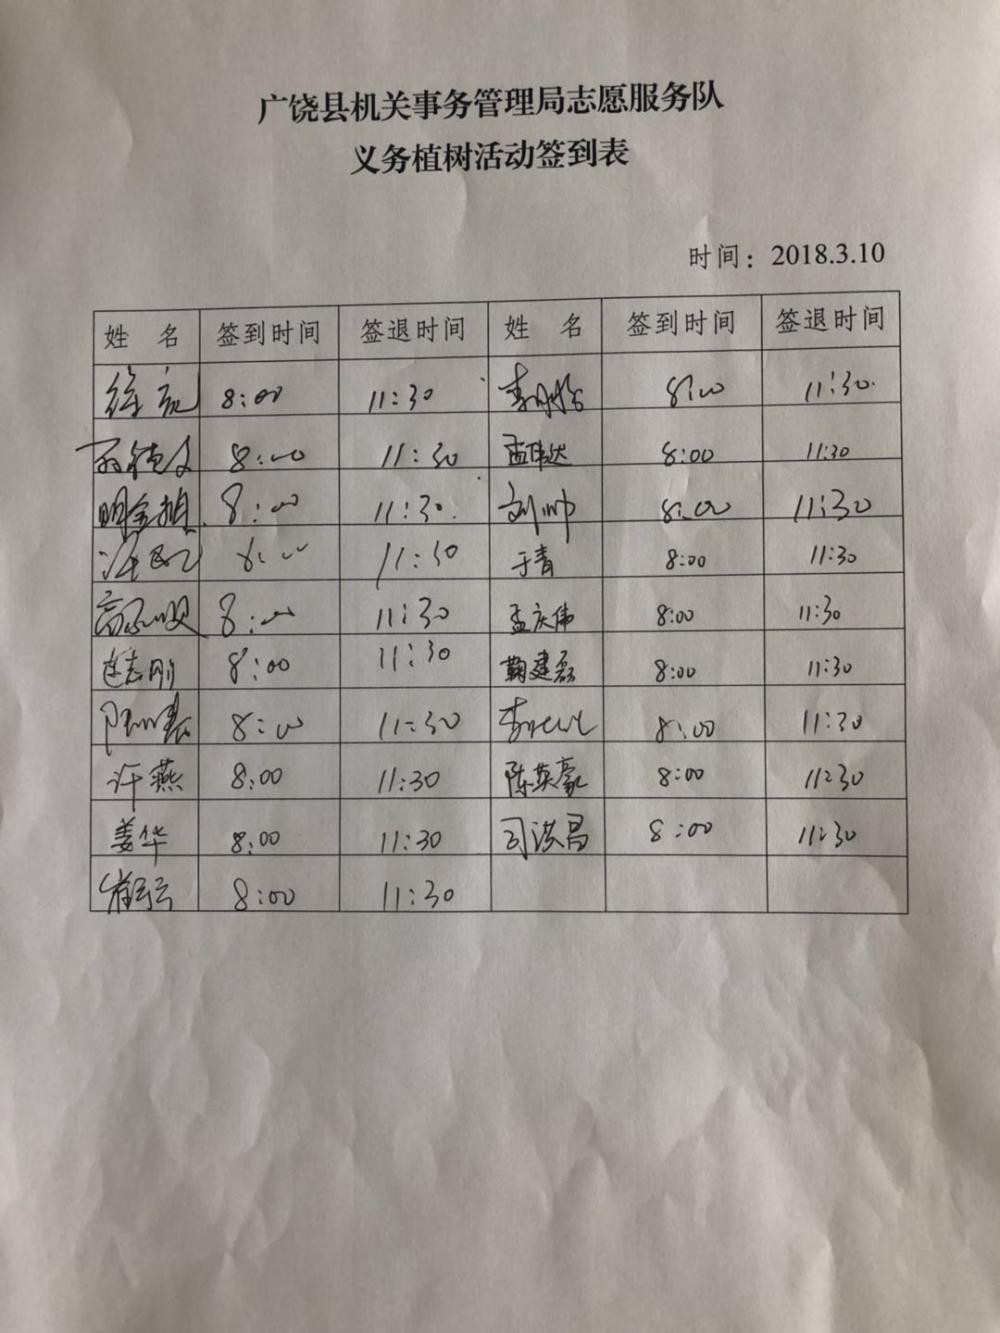 广饶县机关事务管理局志愿服务队
义务植树活动签到表
时间：2018.3.10
姓 名 签到时间 签退时间 姓 名 签到时间 签退时间
徐亮 8:00 11:30 8:00 11:30
8:00 11:30 孟伟达 8:00 11:30
8:00 11:30 刘帅 8:00 11:30
8:00 11:30 于青 8:00 11:30
8:00 11:30 孟庆伟 8:00 11:30
连志刚 8:00 11:30 鞠建磊 8:00 11:30
8:00 11:30 8:00 11:30
许燕 8:00 11:30 陈英豪 8:00 11:30
姜华 8:00 11:30 司洪昌 8:00 11:30
8:00 11:30